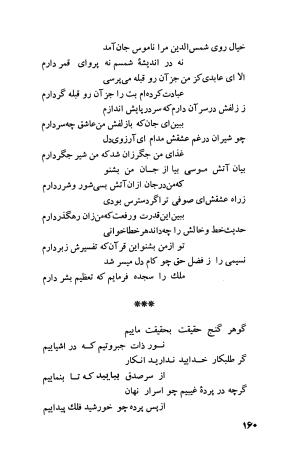 خیال روی شمس‌الدین مرا ناموس جان آمد
نه در اندیشهٔ شمسم نه پروای قمر دارم
الا ای عابدی کز من جز آن رو قبله می‌پرسی
عبادت کرده‌ام بت را جز آن رو قبله گر دارم
ز زلفش در سر آن دارم که سر در پایش اندازم
ببین ای جان که با زلفش من عاشق چه سر دارم
چو شیران در غم عشقش مدام ای آرزوی دل
غذای من جگر زان شد که من شیر جگر دارم
بیان آتش موسی بیا از جان من بشنو
که من در جان از آن آتش بسی شور و شرر دارم
ز راه عشقش ای صوفی تراگر دسترس بودی
ببین این قدرت و رفعت که من زان رهگذر دارم
حدیث خط و خالش را چه داند هر خطاخوانی
تو از من بشنو این قرآن که تفسیرش زبر دارم
نسیمی را ز فضل حق چو کام دل میسر شد
ملك را سجده فرمایم که تعظیم بشر دارم
***
گوهر گنج حقیقت بحقیقت ماییم
نور ذات جبروتیم که در اشیاییم
گر طلبکار خدایید ندارید انکار
از سر صدق بیایید که تا بنماییم
گرچه در پردهٔ غیبیم چو اسرار نهان
از پس پرده چو خورشید فلك پیداییم
۱۶۰